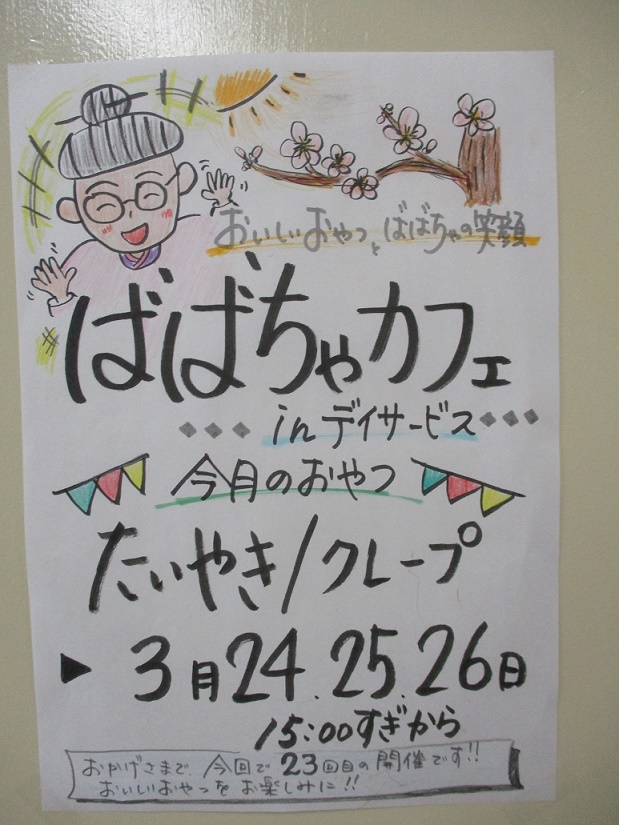 おいしいおやつとばばちゃの笑顔
ばばちゃカフェ
inデイサービス
今月のおやつ
たいやき/クレープ
▶3月24.25.26日
15:00すぎから
おかげさまで、今回で23回目の開催です!!
おいしいおやつをお楽しみに!!